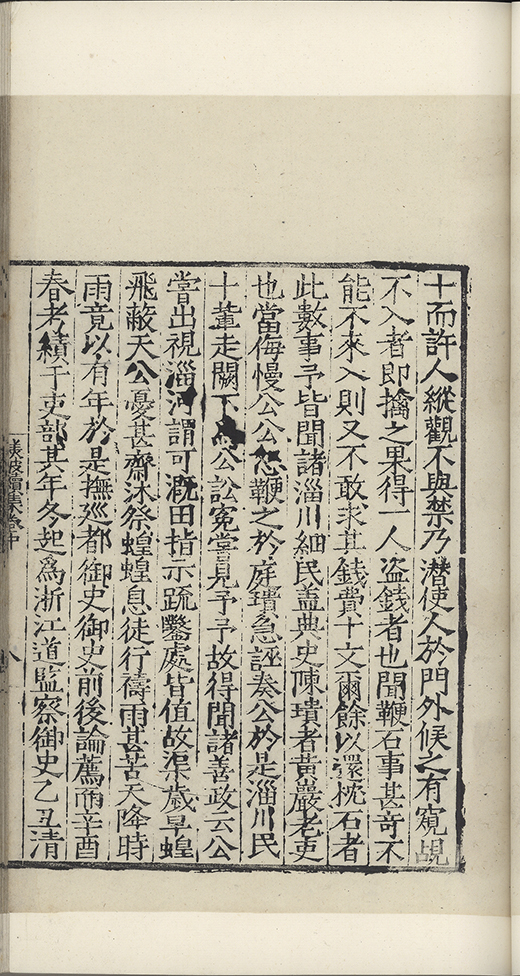 十而許人縱觀不與禁乃潛使人於門外候之有窺覘
不入者即擒之果得一人盗錢者也聞鞭石事甚奇不
能不來入則又不敢求其錢費十文爾餘以還枕石者
此數事予皆聞諸淄川細民盖典史陳璝者黄巖老吏
也當侮慢公公怒鞭之於庭璝急誣奏公於是淄川民
十輩走闕下爲公訟寃嘗見予予故得聞諸善政云公
嘗出視淄河謂可溉田指示疏鑿處皆值故渠歲旱蝗
飛蔽天公憂甚齋沐祭蝗蝗息徒行禱雨甚苦天降時
雨竟以有年於是撫廵都御史御史前後論薦而辛酉
春考績于吏部其年冬起爲浙江道監察御史乙丑清
渼陂續集卷中
八